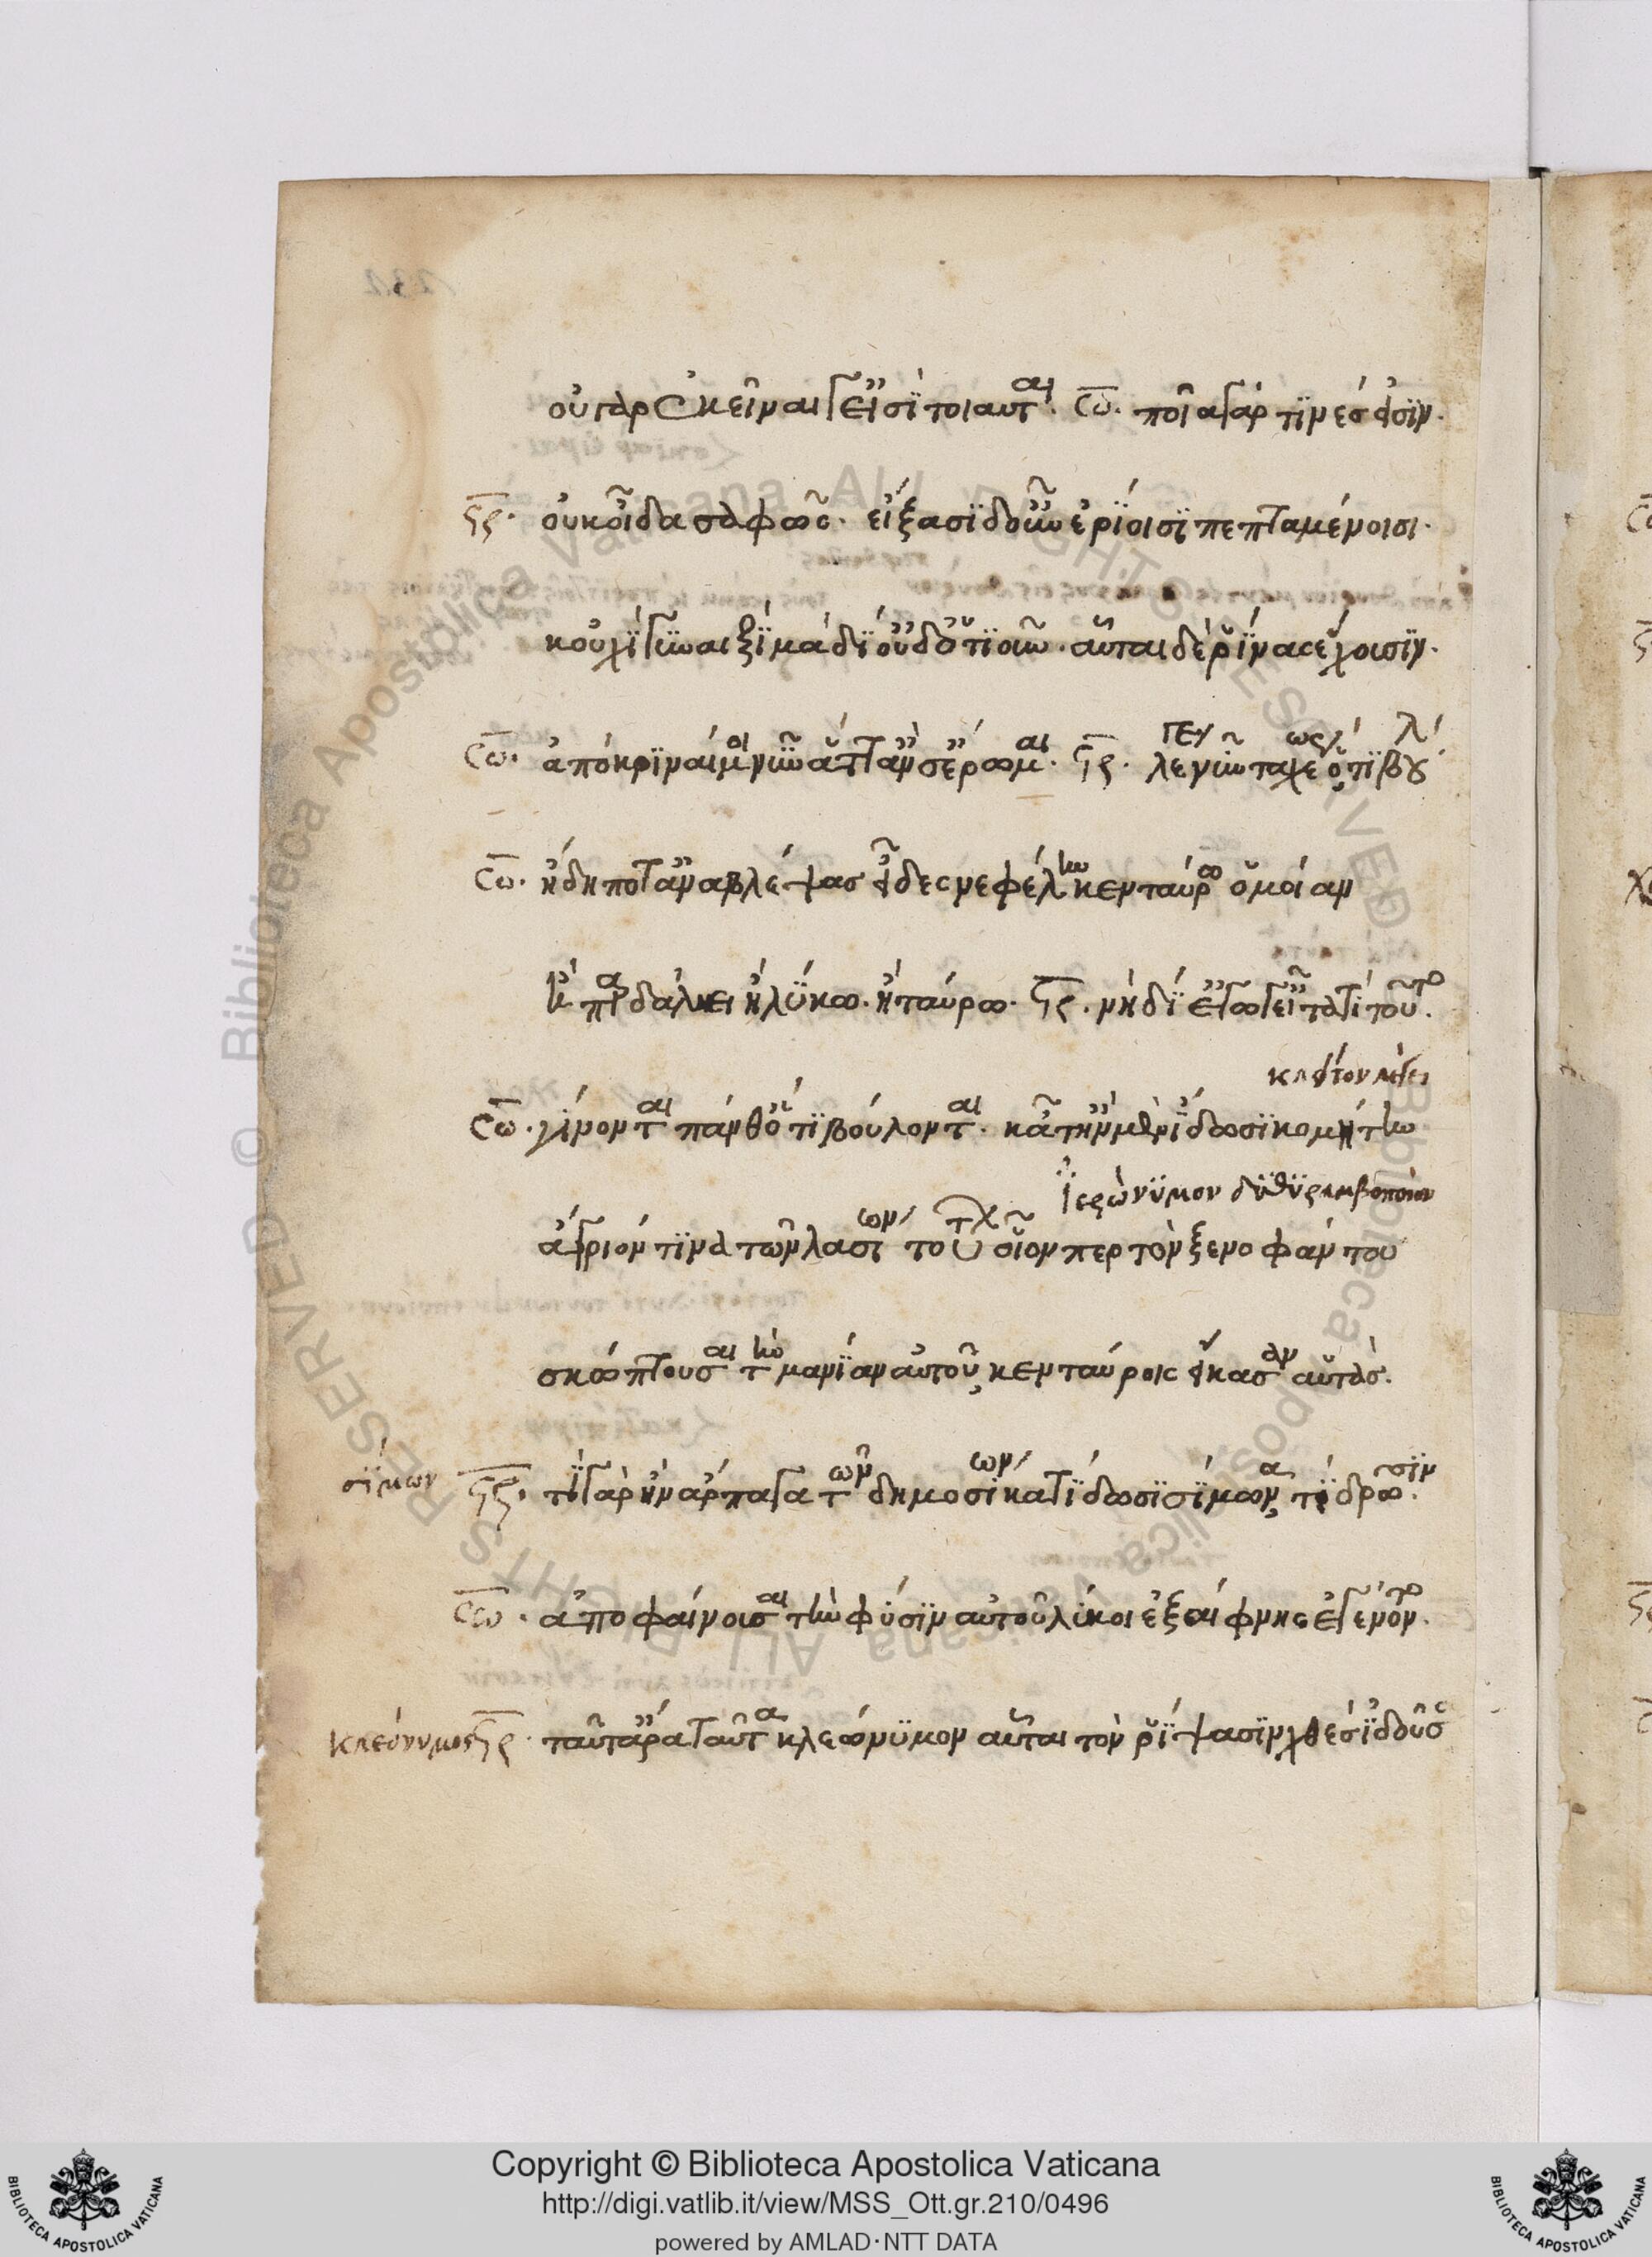 οὐ γὰρ ἐκεῖναι γ' εἰσὶ τοιαῦται. Σω. ποῖαι γάρ τινές εἰσιν.
Στρ. οὐκ οἶδα σαφῶς. εἴξασι δ' οὖν ἐρίοισι πεπταμένοισι.
κοὐχὶ γυναιξὶ μὰ δί' οὐδ' ὁτιοῦν. αὗται δὲ ῥῖνας ἔχουσιν.
Σω. ἀπόκριναί μοι νῦν ἅττ' ἂν σ' ἔρωμαι. Στρ. λέγε νῦν ταχέως ὅτι βούλει
Σω. ἤδη ποτ' ἀναβλέψας εἶδες νεφέλην κενταύρῳ ὁμοίαν
ἢ παρδάλει ἢ λύκῳ. ἢ ταύρῳ. Στρ. νὴ δί' ἔγωγ' εἶτα τί τοῦτο.
κλείτον λέγει
Σω. γίνονται πάνθ' ὅτι βούλονται. κᾆτ' ἢν μὲν ἴδωσι κομήτην
Ἱερώνυμον διθυραμβοποιὸν
ἄγριόν τινα τῶν λασίων τούτων οἷόνπερ τὸν ξενοφάντου
σκώπτουσαι τὴν μανίαν αὐτοῦ, κενταύροις εἴκασαν αὑτάς.
σίμων Στρ. τί γὰρ ἢν ἅρπαγα τῶν δημοσίων κατίδωσι σίμωνα, τί δρῶσιν.
Σω. ἀποφαίνουσαι τὴν φύσιν αὐτοῦ λύκοι ἐξαίφνης ἐγένοντο.
κλεόνυμος Στρ. ταῦτ' ἄρα ταῦτα κλεώνυμον αὗται τὸν ῥίψασπιν χθὲς ἰδοῦσαι
Copyright © Biblioteca Apostolica Vaticana
http://digi.vatlib.it/view/MSS_Ott.gr.210/0496
powered by AMLAD·NTT DATA